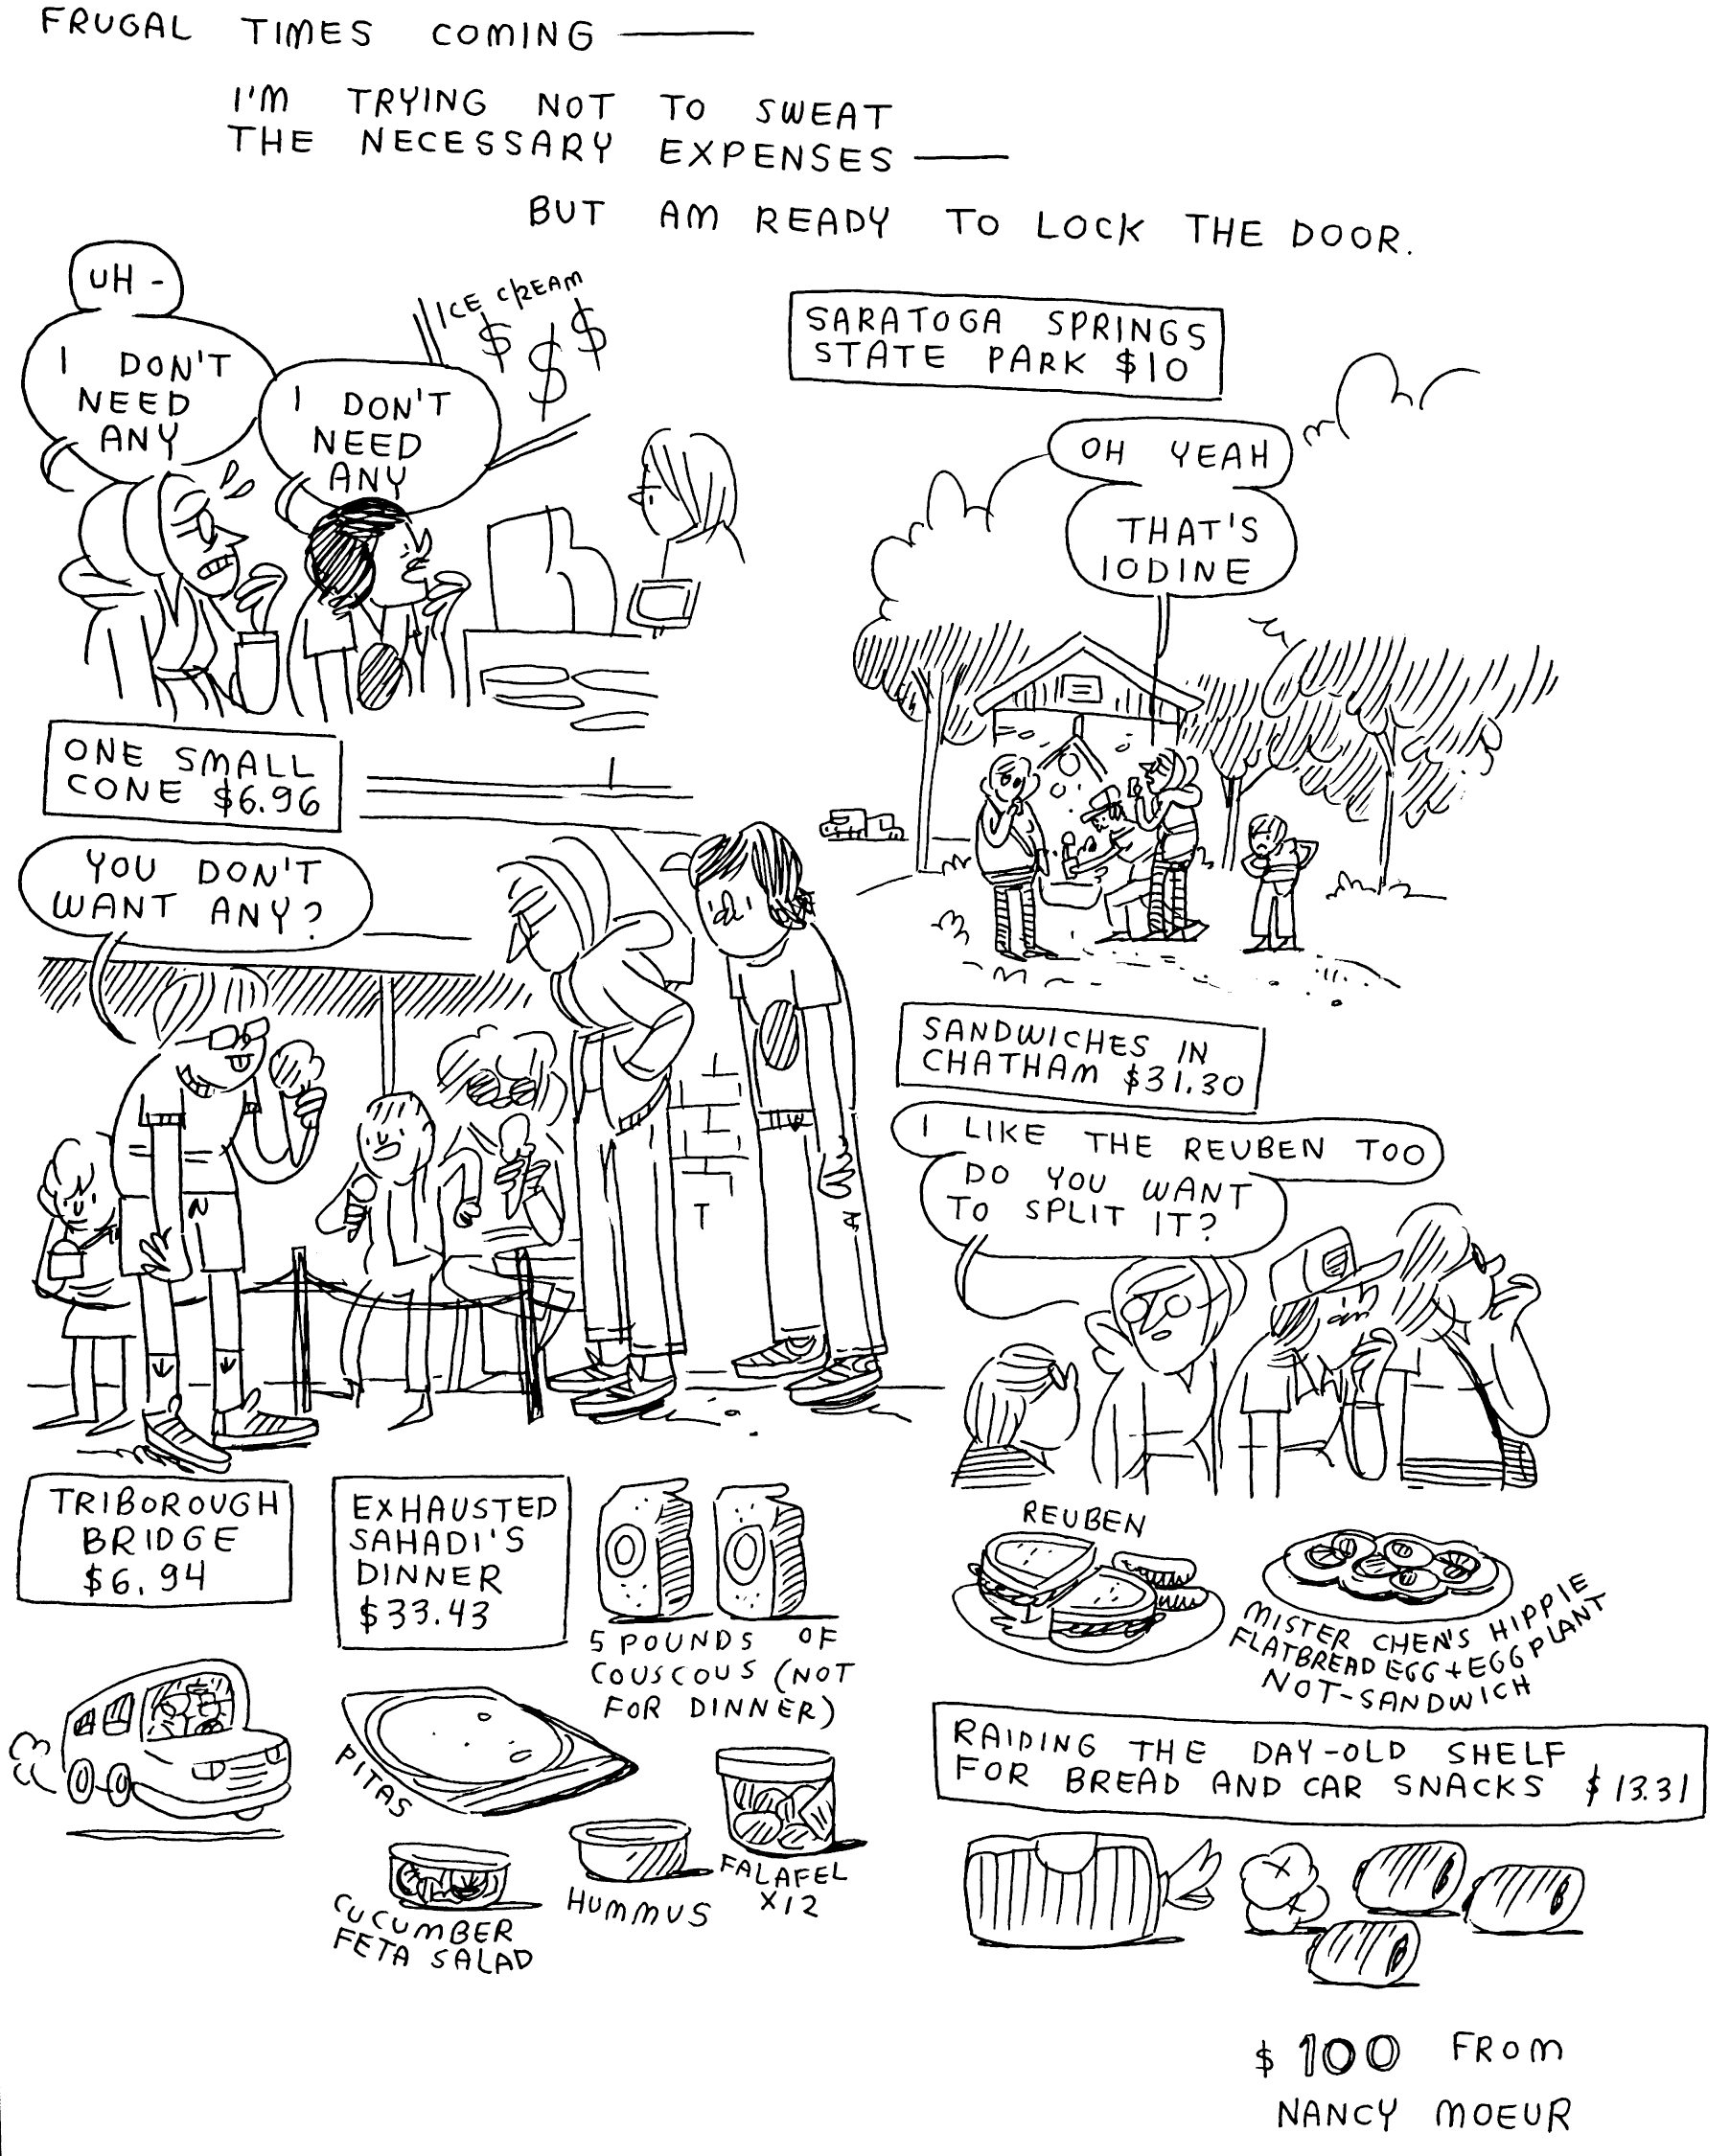 FRUGAL TIMES COMING —
I'M TRYING NOT TO SWEAT
THE NECESSARY EXPENSES —
BUT AM READY TO LOCK THE DOOR.
UH -
I DON'T
NEED
ANY
I DON'T
NEED
ANY
ICE CREAM
$ $ $
ONE SMALL
CONE $6.96
YOU DON'T
WANT ANY?
TRIBOROUGH
BRIDGE
$6.94
EXHAUSTED
SAHADI'S
DINNER
$33.43
5 POUNDS OF
COUSCOUS (NOT
FOR DINNER)
PITAS
CUCUMBER
FETA SALAD
HUMMUS
FALAFEL
X12
SARATOGA SPRINGS
STATE PARK $10
OH YEAH
THAT'S
IODINE
SANDWICHES IN
CHATHAM $31.30
I LIKE THE REUBEN TOO
DO YOU WANT
TO SPLIT IT?
REUBEN
MISTER CHEN'S HIPPIE
FLATBREAD EGG + EGGPLANT
NOT-SANDWICH
RAIDING THE DAY-OLD SHELF
FOR BREAD AND CAR SNACKS $13.31
$100 FROM
NANCY MOEUR